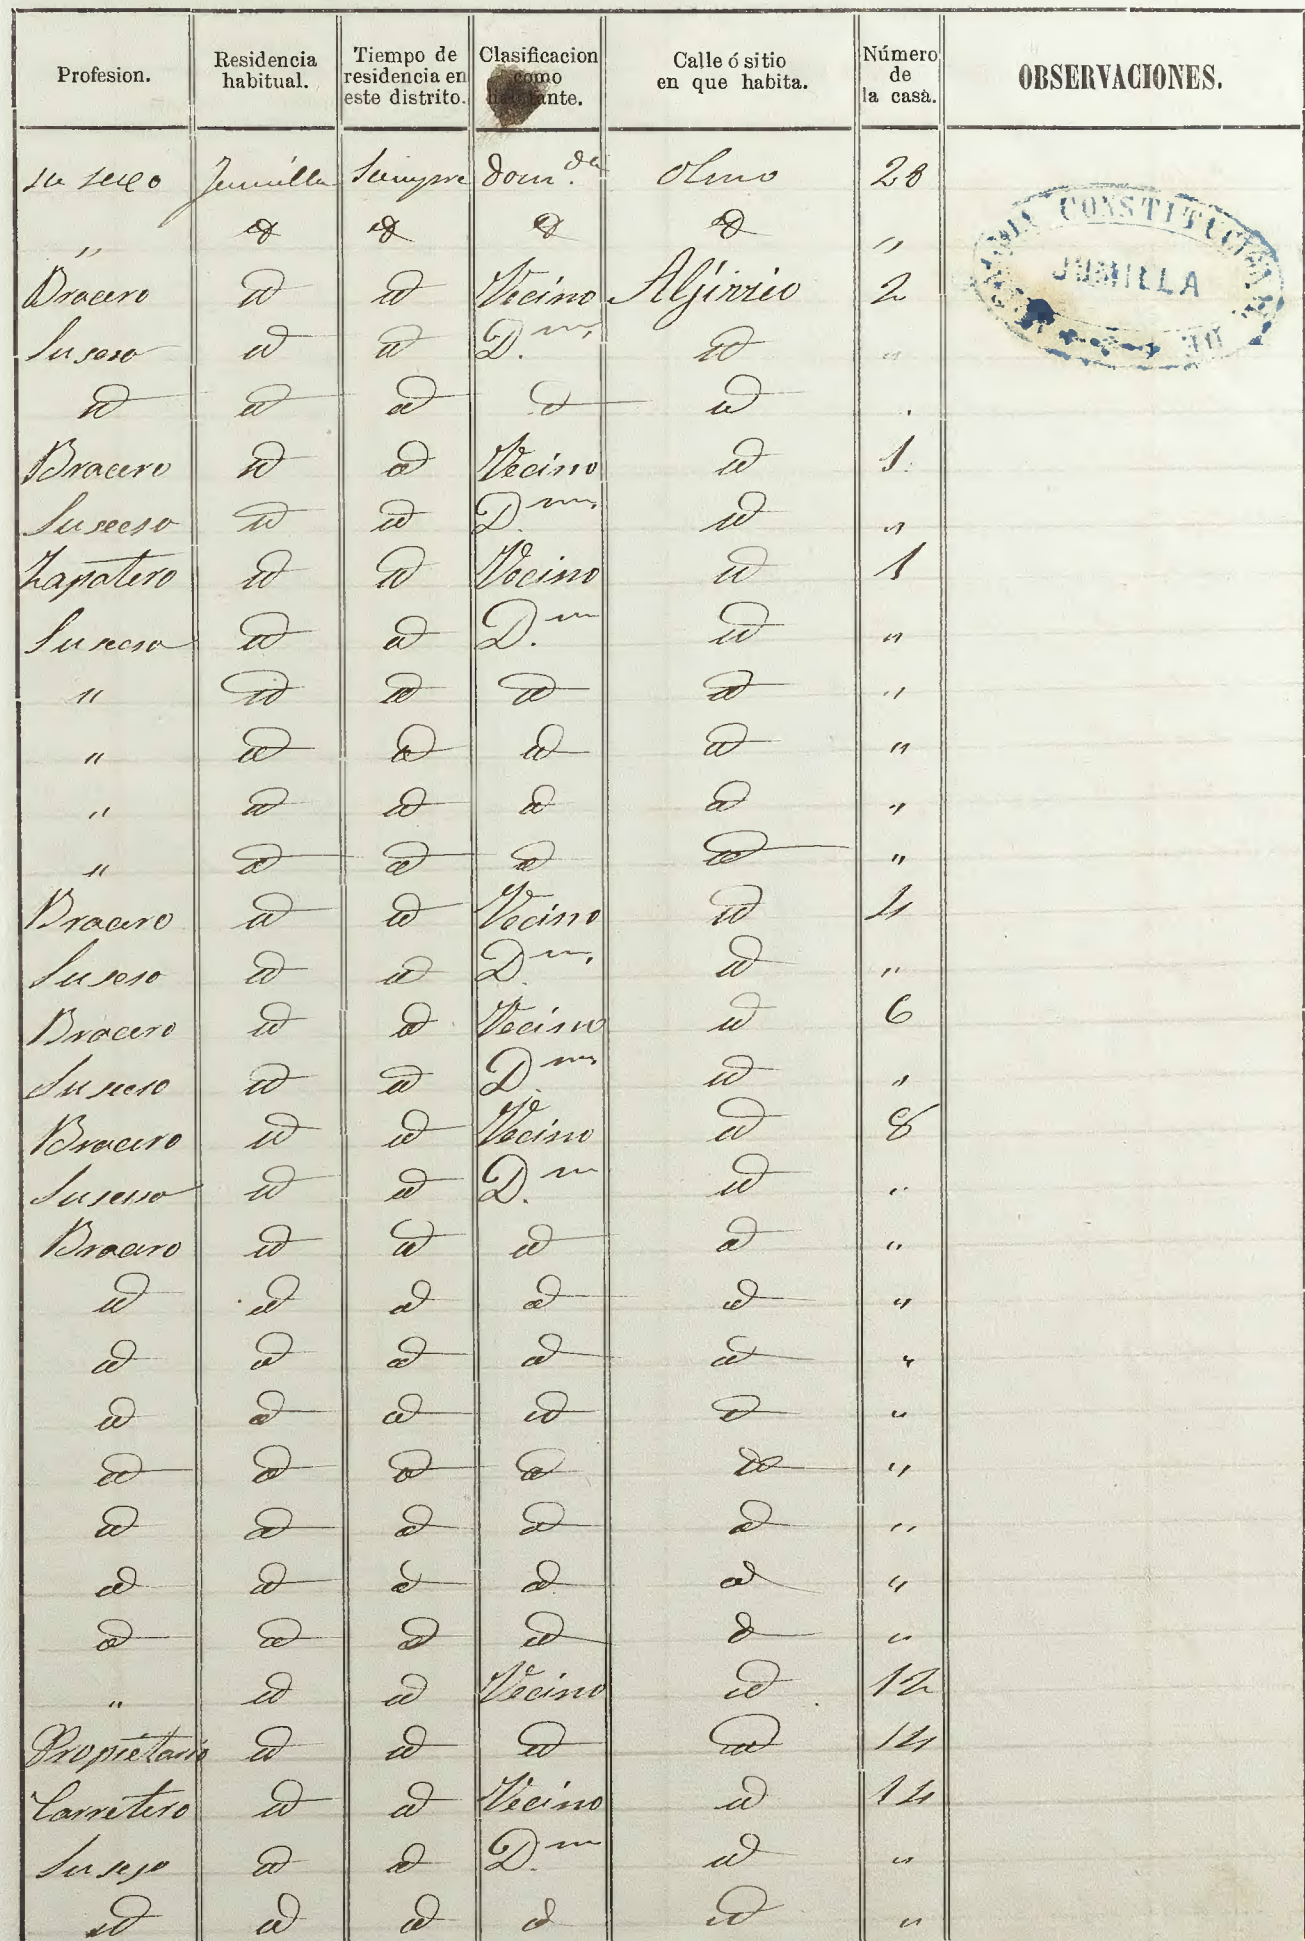 Profesion. Residencia habitual. Tiempo de residencia en este distrito. Clasificacion como habitante. Calle ó sitio en que habita. Número de la casa. OBSERVACIONES.
CONSTITUCIONAL
JUMILLA
su sexo Jumilla Siempre dom.da Olmo 28
" id id id id "
Bracero id id Vecino Aljirrio 2
Su sexo id id D.m id "
id id id id id .
Bracero id id Vecino id 1
Su sexo id id D.m id "
Zapatero id id Vecino id 1
Su sexo id id D.m id "
" id id id id "
" id id id id "
" id id id id "
" id id id id "
Bracero id id Vecino id 4
Su sexo id id D.m id "
Bracero id id Vecino id 6
Su sexo id id D.m id "
Bracero id id Vecino id 8
Su sexo id id D.m id "
Bracero id id id id "
id id id id id "
id id id id id "
id id id id id "
id id id id id "
id id id id id "
id id id id id "
id id id id id "
" id id Vecino id 12
Propietario id id id id 14
Carretero id id Vecino id 14
Su sexo id id D.m id "
id id id id id "